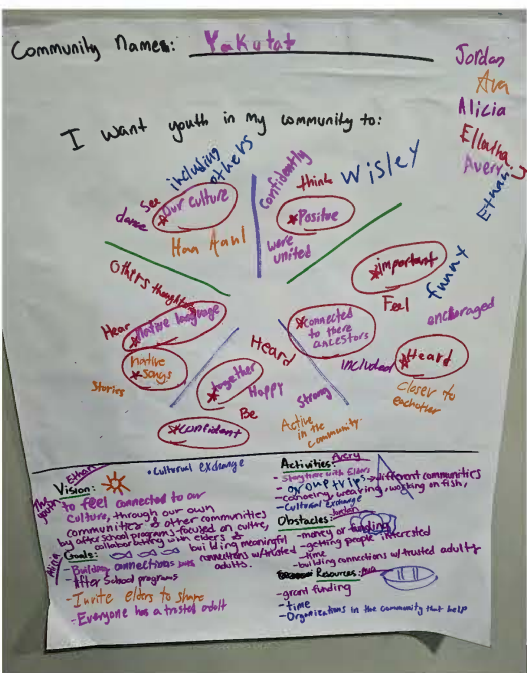 Community Names: Yakutat
Jordan
Ava
Alicia
Avery
Ethan
I want youth in my community to:
See
dance
*Our culture
including
others
Haa Aaní
Confidently
think
Wisley
*Positive
were
united
*important
Feel
funny
encouraged
*Connected
to there
ancestors
included
*Heard
closer to
eachother
Others thoughts
Hear
*Native language
native
*songs
Stories
Heard
*together
Happy
Be
*Confident
Strong
Active
in the
community
Ethan
• Cultural exchange
Vision:
to feel connected to our
culture, through our own
communities & other communities
by after school programs, focused on culture,
collaborating with elders &
building meaningful
connections w/trusted
adults.
Goals:
- Building connections
- After School programs
- Invite elders to share
- Everyone has a trusted adult
Activities: Avery
- Storytime with Elders
- group trips → different communities
- canoeing, weaving, working on fish,
- Cultural exchange
Obstacles: Jordan
- money or funding
- getting people interested
- time
- building connections w/trusted adults
Resources: Ava
- grant funding
- time
- Organizations in the community that help